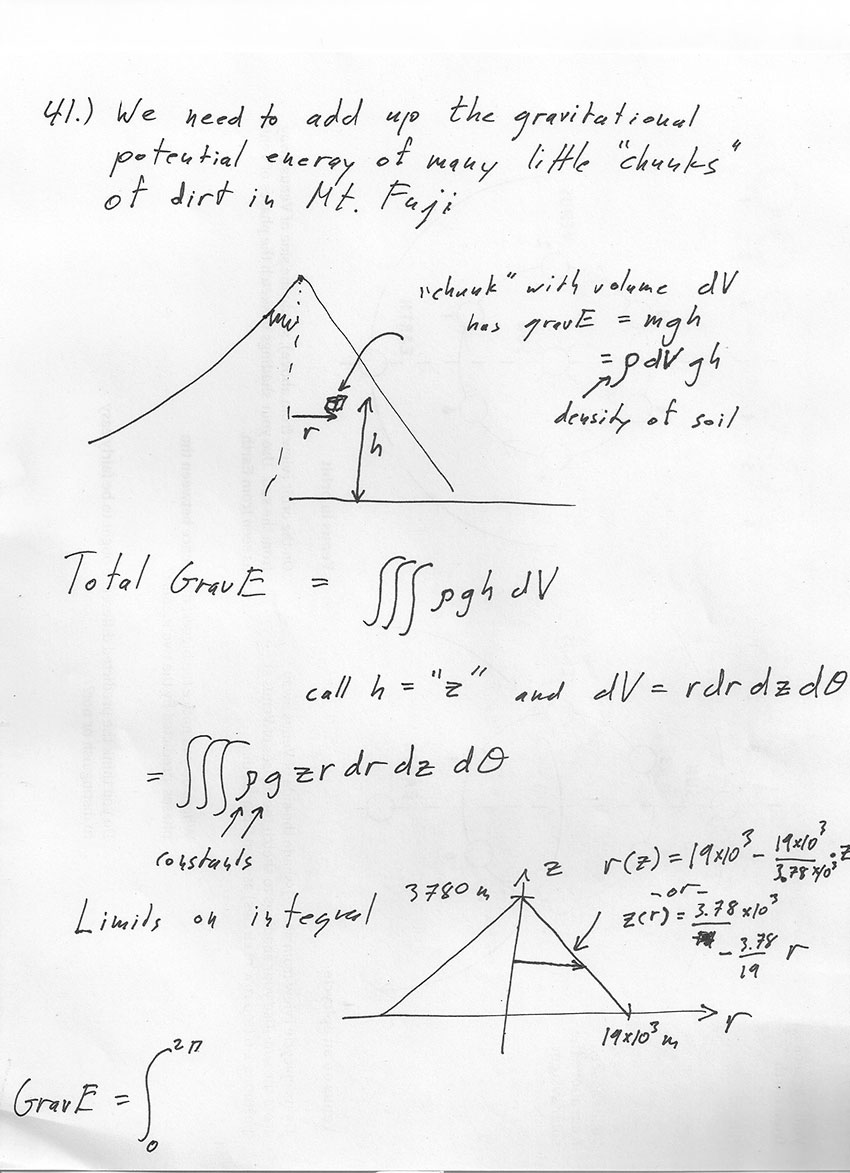 41.) We need to add up the gravitational
potential energy of many little "chunks"
of dirt in Mt. Fuji
"chunk" with volume dV
has gravE = mgh
= ρ dV gh
density of soil
r
h
Total GravE = ∭ ρgh dV
call h = "z" and dV = r dr dz dθ
= ∭ ρg z r dr dz dθ
constants
Limits on integral
3780 m
z
r(z) = 19x10³ - 19x10³/3.78x10³ · z
-or-
z(r) = 3.78x10³
- 3.78/19 r
r
19x10³ m
GravE = ∫₀^2π